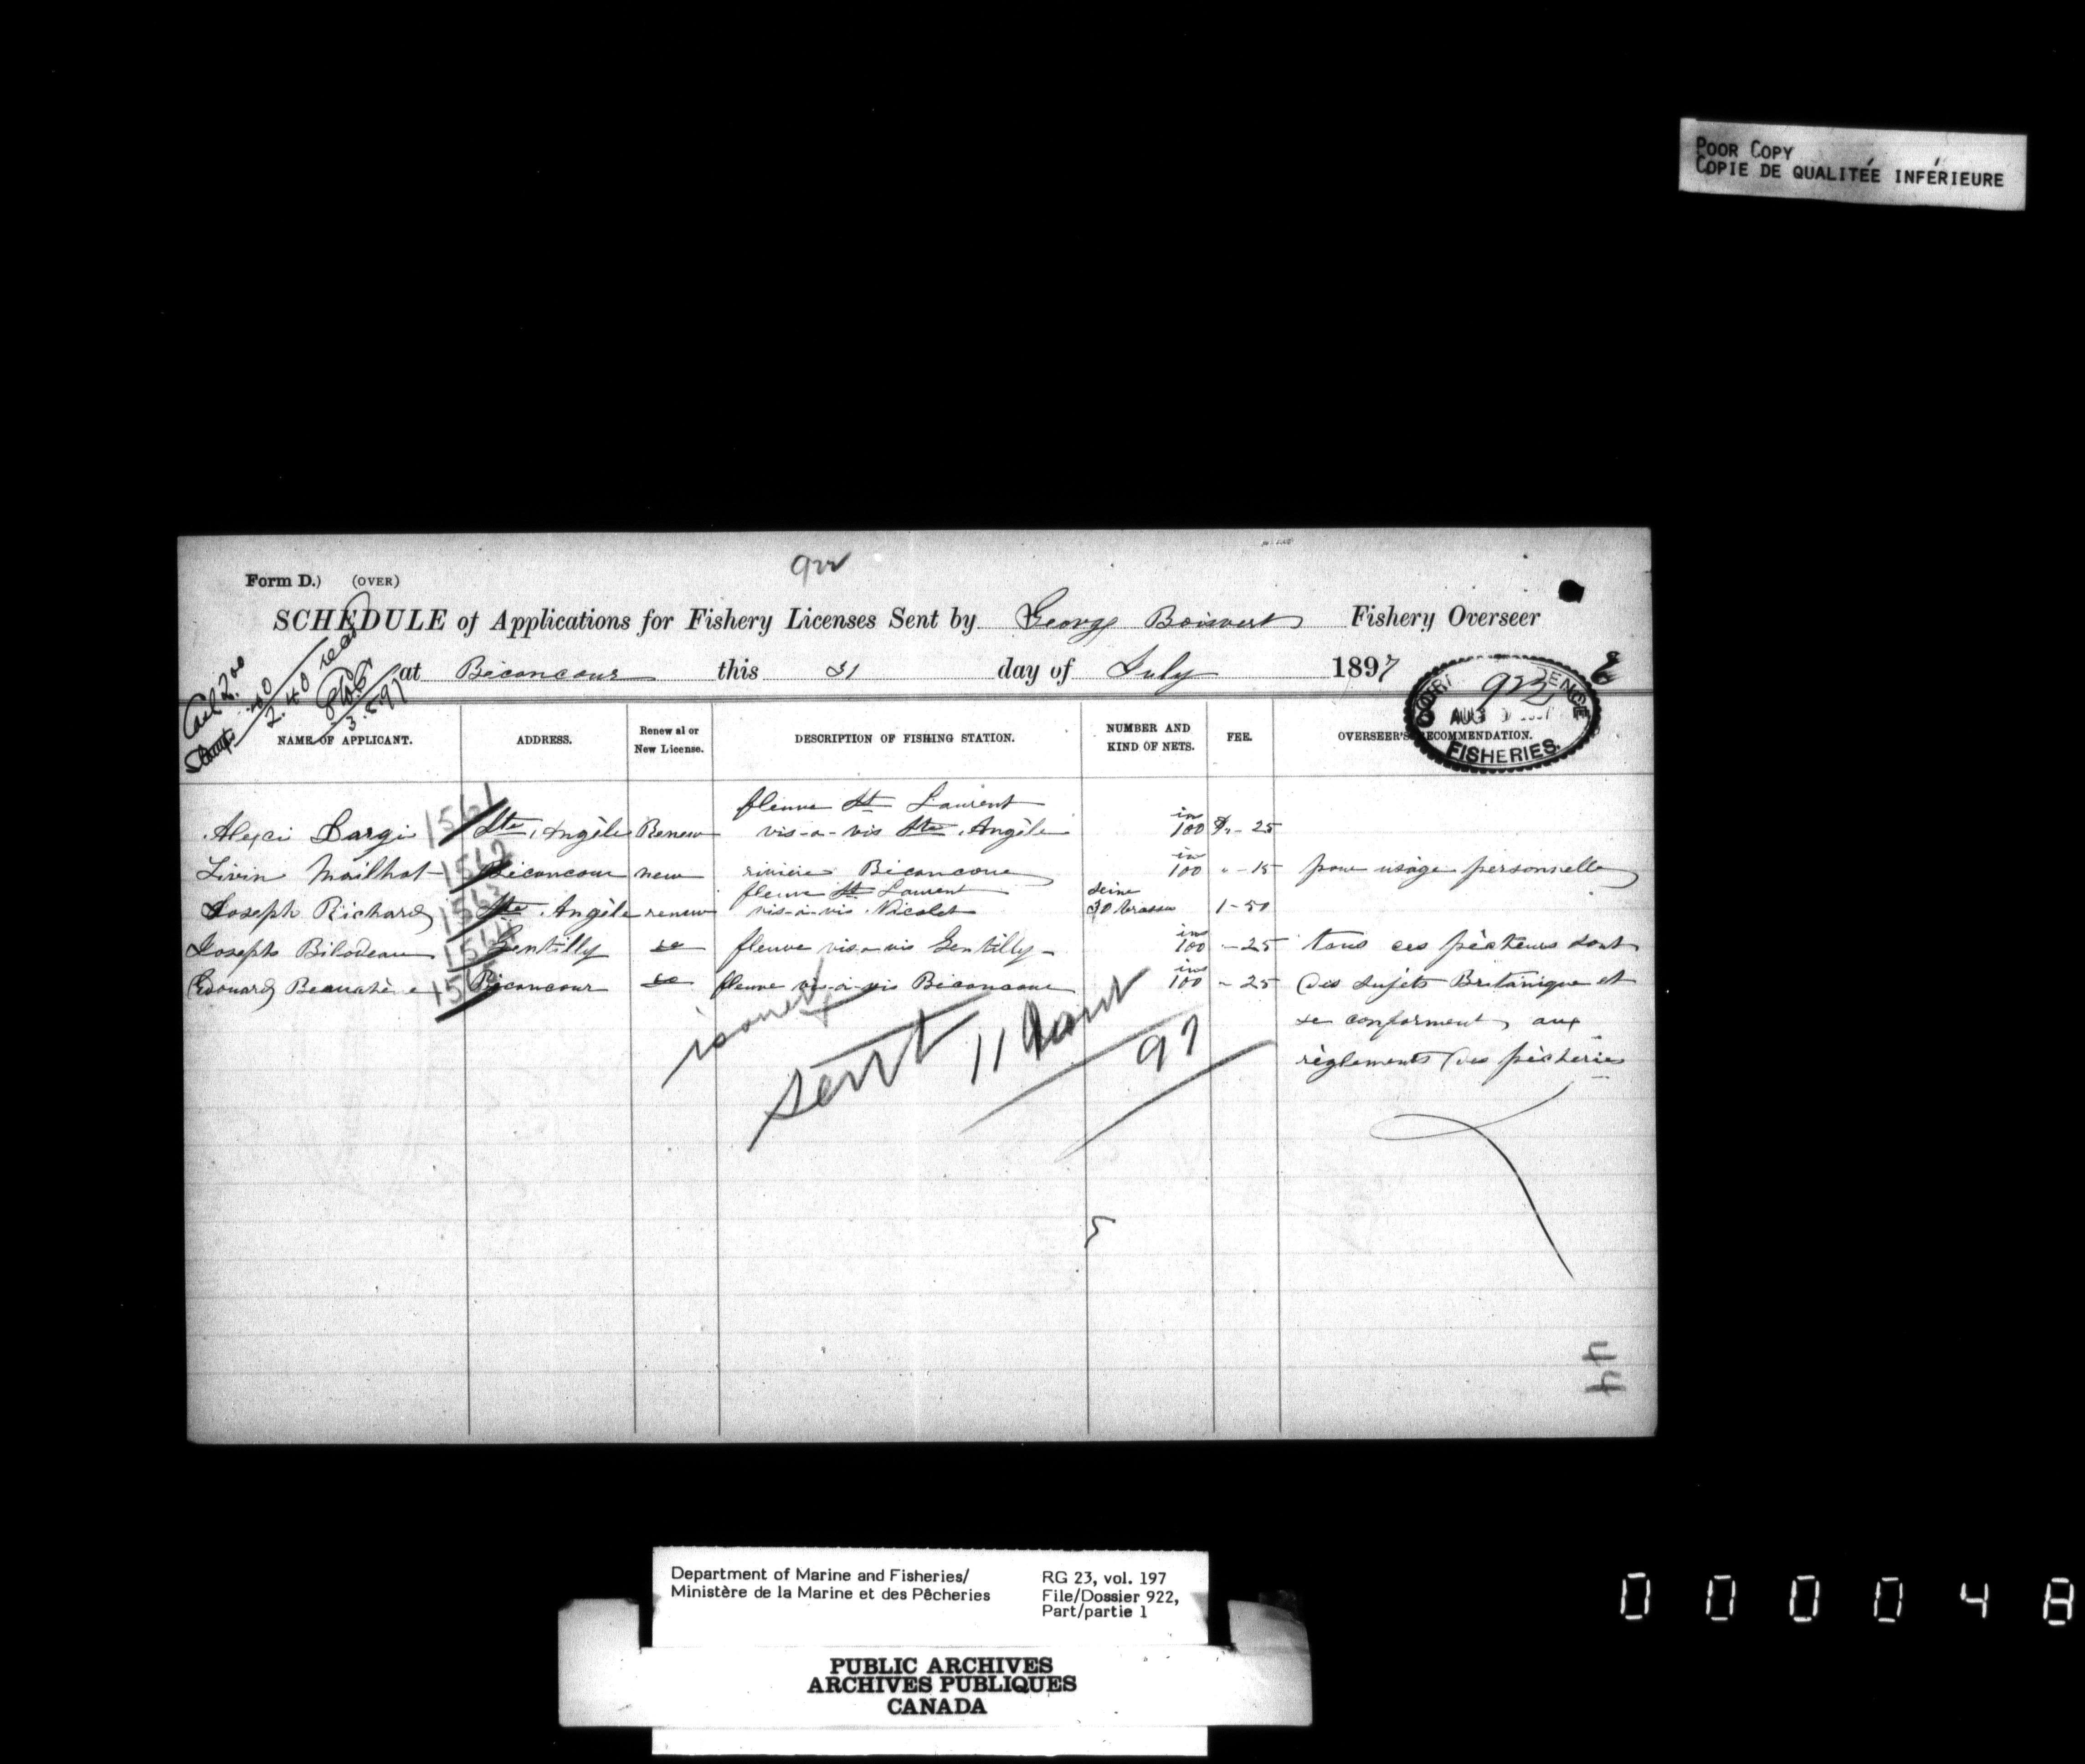 POOR COPY
COPIE DE QUALITÉE INFÉRIEURE
922
Form D.) (OVER)
SCHEDULE of Applications for Fishery Licenses Sent by George Boisvert Fishery Overseer
at Béconcour this 31 day of July 1897
2.40
3.8.97
922
AUG
FISHERIES.
NAME OF APPLICANT. ADDRESS. Renewal or New License. DESCRIPTION OF FISHING STATION. NUMBER AND KIND OF NETS. FEE. OVERSEER'S RECOMMENDATION.
fleuve St Laurent
1561 Ste Angèle Renew vis-a-vis Ste Angèle 100 - 25
Mailhot 1562 Béconcour new rivière Béconcour 100 " - 15 pour usage personnelle
fleuve St Laurent seine
Joseph Richard 1563 Ste Angèle renew vis-a-vis Nicolet 30 brasses 1-50
Joseph Bilodeau 1564 Gentilly fleuve vis-a-vis Gentilly 100 - 25 tous ces pêcheurs sont
Edouard 1565 Béconcour fleuve vis-a-vis Béconcour 100 - 25 des sujets Britanique et
se conforment aux
règlements des pêcheries
issued
sent 11 Aout
97
5
44
Department of Marine and Fisheries/
Ministère de la Marine et des Pêcheries
RG 23, vol. 197
File/Dossier 922,
Part/partie 1
PUBLIC ARCHIVES
ARCHIVES PUBLIQUES
CANADA
000048